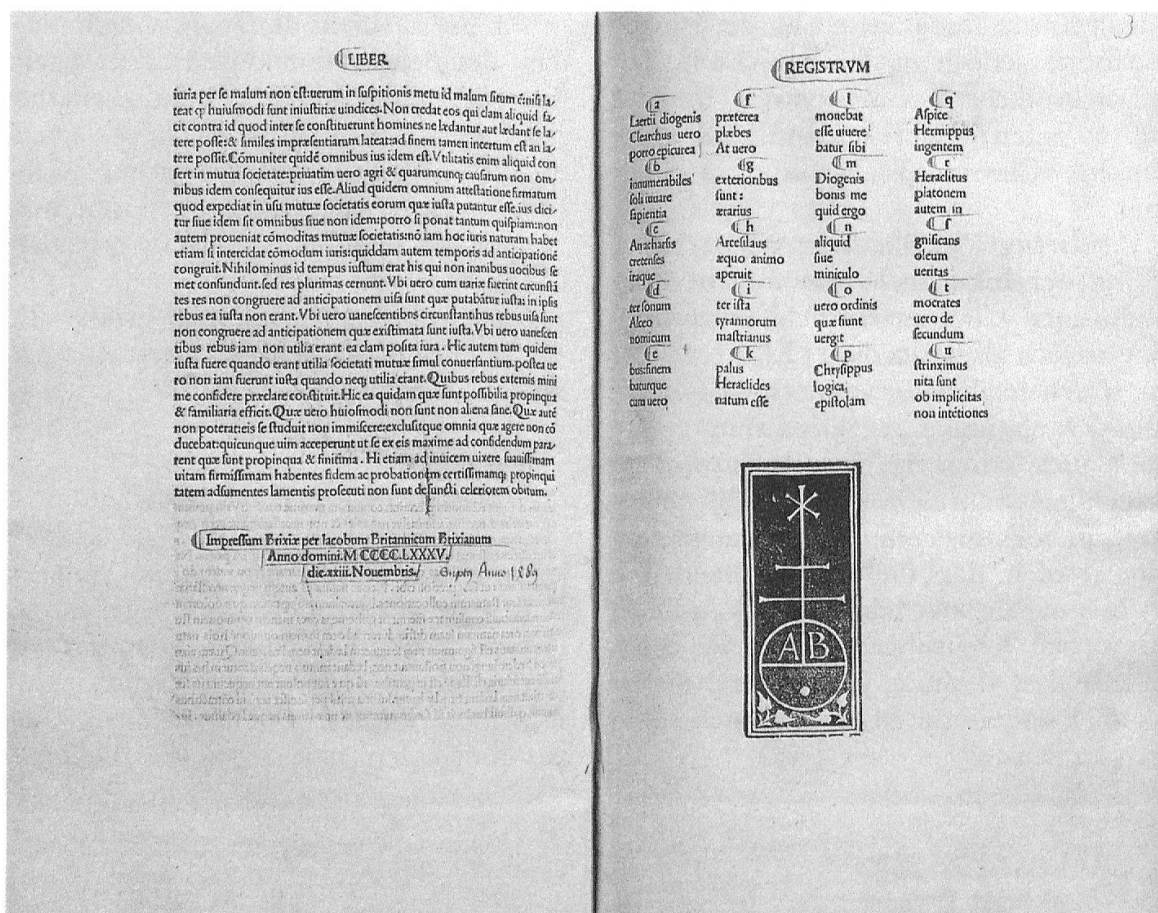 LIBER
iuria per se malum non est:uerum in suspitionis metu id malum situm ē:nisi la-
teat ꝙ huiusmodi sunt iniustitiæ uindices. Non credat eos qui clam aliquid fa-
cit contra id quod inter se constituerunt homines ne lædantur aut lædant se la-
tere posse:& similes impræsentiarum lateat:ad finem tamen incertum est an la-
tere possit. Cōmuniter quidē omnibus ius idem est. Vtilitatis enim aliquid con
fert in mutua societate:priuatim uero agri & quarumcunq; causarum non om-
nibus idem consequitur ius esse. Aliud quidem omnium attestatione firmatum
quod expediat in usu mutuæ societatis eorum quæ iusta putantur esse.ius dici-
tur siue idem sit omnibus siue non idem:porro si ponat tantum quispiam:non
autem proueniat cōmoditas mutuæ societatis:nō iam hoc iuris naturam habet
etiam si intercidat cōmodum iuris:quiddam autem temporis ad anticipationē
congruit. Nihilominus id tempus iustum erat his qui non inanibus uocibus se
met confundunt.sed res plurimas cernunt. Vbi uero cum uariæ fuerint circunstā
tes res non congruere ad anticipationem uisa sunt quæ putabātur iusta: in ipsis
rebus ea iusta non erant. Vbi uero uanescentibns circunstantibus rebus uisa sunt
non congruere ad anticipationem quæ existimata sunt iusta. Vbi uero uanescen
tibus rebus iam non utilia erant ea clam posita iura. Hic autem tum quidem
iusta fuere quando erant utilia societati mutuæ simul conuersantium.postea ue
ro non iam fuerunt iusta quando neq; utilia erant. Quibus rebus externis mini
me confidere præclare constituit. Hic ea quidam quæ sunt possibilia propinqua
& familiaria efficit. Quæ uero huiosmodi non sunt non aliena sane. Quæ autē
non poterat:eis se studuit non immiscere:exclusitque omnia quæ agere non cō
ducebat:quicunque uim acceperunt ut se ex eis maxime ad confidendum para-
rent quæ sunt propinqua & finitima. Hi etiam ad inuicem uixere suauissimam
uitam firmissimam habentes fidem ac probationem certissimamq; propinqui
tatem adsumentes lamentis prosecuti non sunt defuncti celeriotem obitum.
Impressum Brixiæ per Iacobum Britannicum Brixianum
Anno domini.M CCCC.LXXXV.
die.xxiii.Nouembris.
REGISTRVM
a f l q
Laertii diogenis præterea monebat Aspice
Clearchus uero plæbes esse uiuere Hermippus
porro epicurea At uero batur sibi ingentem
b g m r
innumerabiles exterionbus Diogenis Heraclitus
soli iuuare sunt: bonis me platonem
sapientia ærarius quid ergo autem in
c h n s
Anacharsis Arcesilaus aliquid gnificans
cretenses æquo animo siue oleum
itaque aperuit miniculo ueritas
d i o t
ter sonum ter ista uero ordinis mocrates
Alceo tyrannorum quæ fiunt uero de
nomicum mastrianus uergit secundum
e k p u
bus:finem palus Chrysippus strinximus
baturque Heraclides logica, nita sunt
cum uero natum esse epistolam ob implicitas
non intētiones
A B